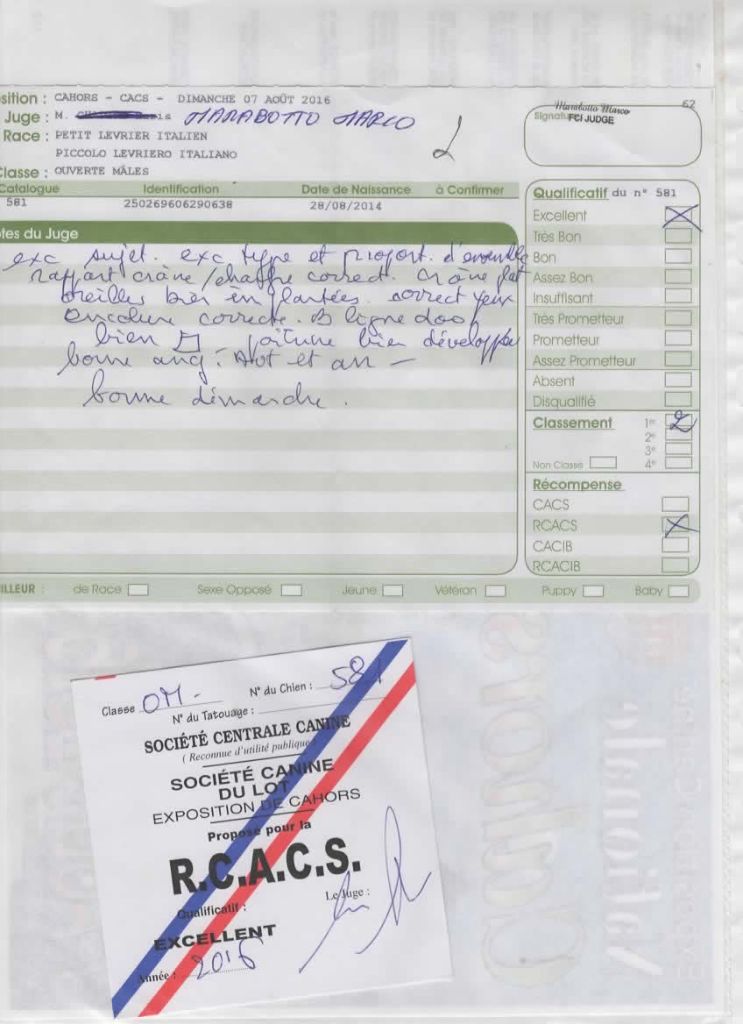 sition : CAHORS - CACS - DIMANCHE 07 AOÛT 2016
62
Juge : M. MARABOTTO MARCO
2
Marabotto Marco
Signatu FCI JUDGE
Race : PETIT LEVRIER ITALIEN
PICCOLO LEVRIERO ITALIANO
Classe : OUVERTE MÂLES
Catalogue Identification Date de Naissance à Confirmer
581 250269606290638 28/08/2014
tes du Juge
exc sujet. exc type et proport. d'ensemble
rapport crâne/chanfre correct. crâne plat
oreilles bien implantées. correct yeux
encolure correcte. ligne dos
bien poitrine bien développé
bonne ang. Avt et arr -
bonne démarche.
Qualificatif du n° 581
Excellent X
Très Bon
Bon
Assez Bon
Insuffisant
Très Prometteur
Prometteur
Assez Prometteur
Absent
Disqualifié
Classement 1er 2
2e
3e
Non Classé 4e
Récompense
CACS
RCACS X
CACIB
RCACIB
ILLEUR : de Race Sexe Opposé Jeune Vétéran Puppy Baby
Classe OM - N° du Chien : 581
N° du Tatouage :
SOCIÉTÉ CENTRALE CANINE
( Reconnue d'utilité publique )
SOCIÉTÉ CANINE
DU LOT
EXPOSITION DE CAHORS
Proposé pour la
R.C.A.C.S.
Le Juge :
Qualificatif :
EXCELLENT
Année : 2016